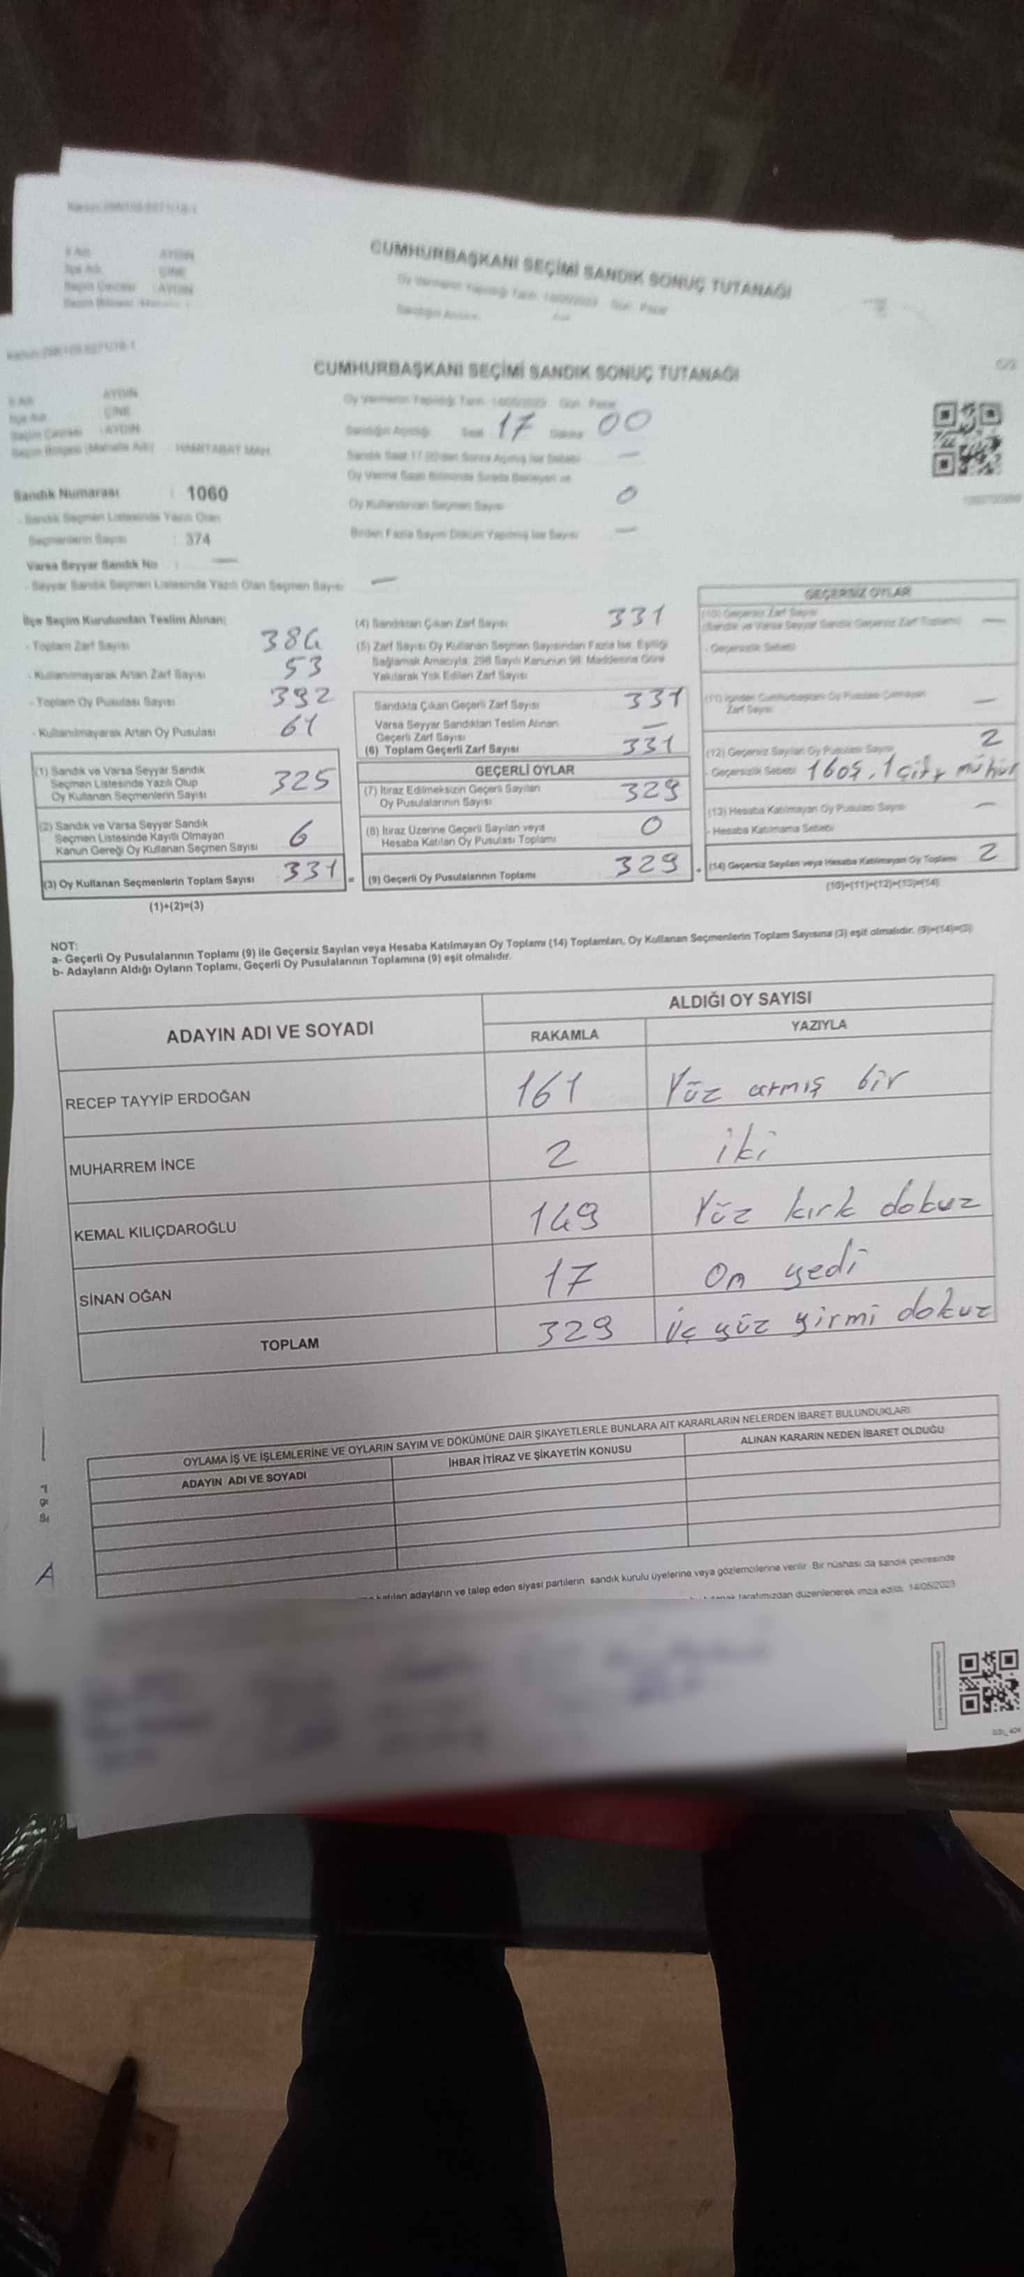 AYDIN
ÇİNE
AYDIN
CUMHURBAŞKANI SEÇİMİ SANDIK SONUÇ TUTANAĞI
CUMHURBAŞKANI SEÇİMİ SANDIK SONUÇ TUTANAĞI
İli Adı AYDIN
İlçe Adı ÇİNE
Seçim Çevresi AYDIN
Seçim Bölgesi (Mahalle Adı) HAMİTABAT MAH.
Oy Vermenin Yapıldığı Tarih Gün: Pazar
Sandığın Açıldığı Saat 17 Dakika 00
Sandık Saat 17.00'den Sonra Açılmış İse Sebebi —
Oy Kullandırılan Seçmen Sayısı 0
Birden Fazla Sayım Döküm Yapılmış İse Sayısı —
Sandık Numarası : 1060
- Sandık Seçmen Listesinde Yazılı Olan
Seçmenlerin Sayısı : 374
Varsa Seyyar Sandık No : —
- Seyyar Sandık Seçmen Listesinde Yazılı Olan Seçmen Sayısı —
İlçe Seçim Kurulundan Teslim Alınan:
- Toplam Zarf Sayısı 384
- Kullanılmayarak Artan Zarf Sayısı 53
- Toplam Oy Pusulası Sayısı 392
- Kullanılmayarak Artan Oy Pusulası 61
(1) Sandık ve Varsa Seyyar Sandık
Seçmen Listesinde Yazılı Olup
Oy Kullanan Seçmenlerin Sayısı 325
(2) Sandık ve Varsa Seyyar Sandık
Seçmen Listesinde Kayıtlı Olmayan
Kanun Gereği Oy Kullanan Seçmen Sayısı 6
(3) Oy Kullanan Seçmenlerin Toplam Sayısı 331
(1)+(2)=(3)
(4) Sandıktan Çıkan Zarf Sayısı 331
(5) Zarf Sayısı Oy Kullanan Seçmen Sayısından Fazla İse, Eşitliği
Sağlamak Amacıyla, 298 Sayılı Kanunun 98. Maddesine Göre
Yakılarak Yok Edilen Zarf Sayısı
Sandıkta Çıkan Geçerli Zarf Sayısı 331
Varsa Seyyar Sandıktan Teslim Alınan
Geçerli Zarf Sayısı —
(6) Toplam Geçerli Zarf Sayısı 331
GEÇERLİ OYLAR
(7) İtiraz Edilmeksizin Geçerli Sayılan
Oy Pusulalarının Sayısı 329
(8) İtiraz Üzerine Geçerli Sayılan veya
Hesaba Katılan Oy Pusulası Toplamı 0
(9) Geçerli Oy Pusulalarının Toplamı 329
GEÇERSİZ OYLAR
(10) Geçersiz Zarf Sayısı
(Sandık ve Varsa Seyyar Sandık Geçersiz Zarf Toplamı) —
- Geçersizlik Sebebi
(11) İçinden Cumhurbaşkanı Oy Pusulası Çıkmayan
Zarf Sayısı —
(12) Geçersiz Sayılan Oy Pusulası Sayısı 2
- Geçersizlik Sebebi 1 boş, 1 çift mühür
(13) Hesaba Katılmayan Oy Pusulası Sayısı —
- Hesaba Katılmama Sebebi
(14) Geçersiz Sayılan veya Hesaba Katılmayan Oy Toplamı 2
(10)+(11)+(12)+(13)=(14)
NOT:
a- Geçerli Oy Pusulalarının Toplamı (9) ile Geçersiz Sayılan veya Hesaba Katılmayan Oy Toplamı (14) Toplamları, Oy Kullanan Seçmenlerin Toplam Sayısına (3) eşit olmalıdır. (9)+(14)=(3)
b- Adayların Aldığı Oyların Toplamı, Geçerli Oy Pusulalarının Toplamına (9) eşit olmalıdır.
ADAYIN ADI VE SOYADI
ALDIĞI OY SAYISI
RAKAMLA YAZIYLA
RECEP TAYYİP ERDOĞAN 161 Yüz atmış bir
MUHARREM İNCE 2 iki
KEMAL KILIÇDAROĞLU 149 Yüz kırk dokuz
SİNAN OĞAN 17 On yedi
TOPLAM 329 üç yüz yirmi dokuz
OYLAMA İŞ VE İŞLEMLERİNE VE OYLARIN SAYIM VE DÖKÜMÜNE DAİR ŞİKAYETLERLE BUNLARA AİT KARARLARIN NELERDEN İBARET BULUNDUKLARI
ADAYIN ADI VE SOYADI İHBAR İTİRAZ VE ŞİKAYETİN KONUSU ALINAN KARARIN NEDEN İBARET OLDUĞU
A
katılan adayların ve talep eden siyasi partilerin sandık kurulu üyelerine veya gözlemcilerine verilir. Bir nüshası da sandık çevresinde
tarafımızdan düzenlenerek imza edildi. 14/05/2023